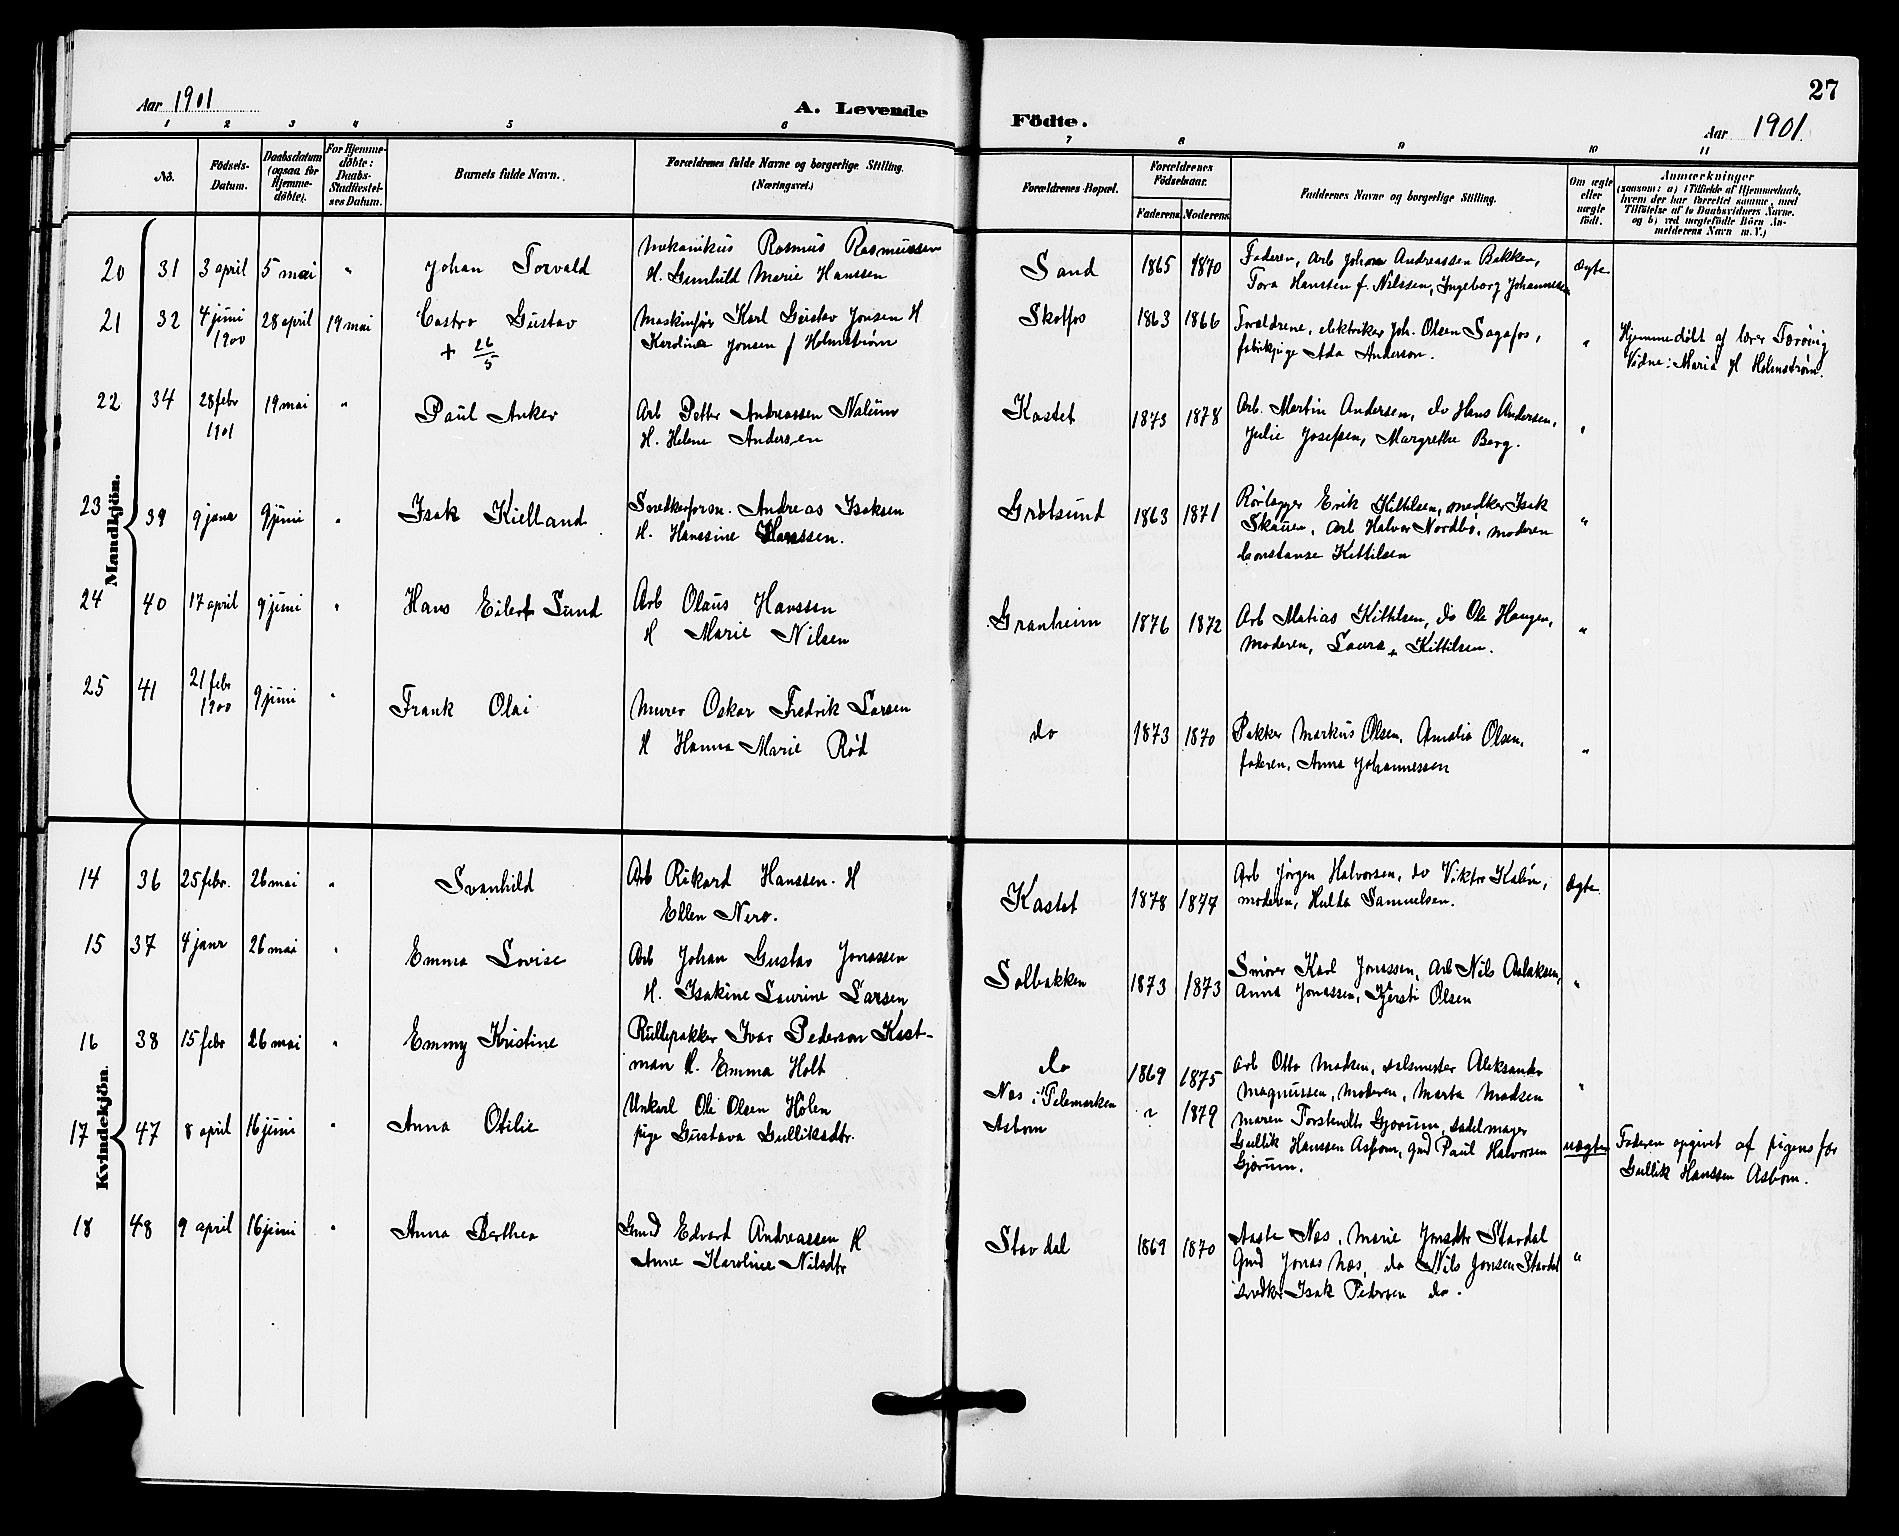 27
Aar 1901
A. Levende
Födte.
Aar 1901.
1 2 3 4 5 6 7 8 9 10 11
No.
Födsels-
Datum.
Daabsdatum
(ogsaa for
Hjemme-
döbte).
For Hjemme-
döbte:
Daabs-
Stadfæstel-
ses Datum.
Barnets fulde Navn.
Forældrenes fulde Navne og borgerlige Stilling.
(Næringsvei.)
Forældrenes Bopæl.
Forældrenes
Födselsaar.
Faderens Moderens
Faddernes Navne og borgerlige Stilling.
Om ægte
eller
uægte
födt.
Anmærkninger
(saasom: a) i Tilfælde af Hjemmedaab,
hvem der har forrettet samme, med
Tilföielse af to Daabsvidners Navne,
og b) ved uægtefödte Börn An-
melderens Navn m. V.)
Mandkjön.
20 31 3 april 5 mai " Johan Torvald
Mekanikus Rasmus Rasmussen
H. Gunhild Marie Hanssen
Sand 1865 1870
Faderen, Arb Johan Andreassen Bakken,
Tora Hanssen f. Nilssen, Ingeborg Johannessen
Ægte
21 32 4 juni 1900 28 april 19 mai Castro Gustav
+ 26/5
Maskinfør Karl Gustav Jonsen H
Karoline Jonsen f Holmstrøm
Skotfos 1863 1866
Forældrene, elektriker Joh. Olsen Sagafos,
fabrikpige Ada Anderson.
"
Hjemmedøbt af lærer Torøing
Vidne: Maria H Holmstrøm.
22 34 28 febr 1901 19 mai " Paul Anker
Arb Petter Andreassen Nalum
H. Helene Andersen
Kastet 1873 1878
Arb. Martin Andersen, do Hans Andersen,
Julie Josefsen, Margrethe Berg.
"
23 39 9 janr 9 juni " Isak Kielland
Snedkerform. Andreas Isaksen
H. Hanssine Hanssen.
Grøtsund 1863 1871
Rørlægger Erik Kittilsen, snedker Isak
Skauen, Arb Halvor Nordbø, moderen
Constanse Kittilsen
"
24 40 17 april 9 juni " Hans Eilert Sund
Arb Olaus Hanssen
H Marie Nilsen
Granheim 1876 1872
Arb Matias Kittilsen, do Ole Haugen,
Moderen, Laura Kittilsen.
"
25 41 21 febr 1900 9 juni " Frank Olai
Murer Oskar Fredrik Larsen
H Hanna Marie Rød
do 1873 1870
Pakker Markus Olsen, Amalia Olsen,
faderen, Anna Johannessen
"
Kvindekjön.
14 36 25 febr. 26 mai " Svanhild
Arb Rikard Hanssen. H
Ellen Nero.
Kastet 1878 1877
Arb Jørgen Halvorsen, do Viktor Kalin,
moderen, Hulda Samuelsen.
Ægte
15 37 4 janr 26 mai " Emma Lovise
Arb Johan Gustav Jonassen
H. Isakine Laurine Larsen
Solbakken 1873 1873
Smører Karl Jonassen, Arb Nils Aslaksen,
Anna Jonassen, Kjersti Olsen
"
16 38 15 febr 26 mai " Emmy Kristine
Rullepakker Ivar Pederson Kast-
man H. Emma Holt
do 1869 1875
Arb Otto Madsen, salsmester Aleksander
Magnussen, moderen, Marta Madsen
"
17 47 8 april 16 juni " Anna Otilie
Unkarl Ole Olsen Holen
pige Gustava Gulliksdtr.
Næs i Telemarken
Asbom
? 1879
Maren Torstendtr Gjorum, sadelmager
Gullik Hanssen Asbom, Gmd Paul Halvorsen
Gjorum.
uægte
Faderen opgivet af pigens far
Gullik Hanssen Asbom.
18 48 9 april 16 juni " Anna Berthea
Gmd Edvard Andreassen H
Anne Karoline Nilsdtr
Stavdal 1869 1870
Aaste Næs, Marie Jonsdtr Stavdal
Gmd Jonas Næs, do Nils Jonsen Stavdal
snedker Isak Pedersen do.
"